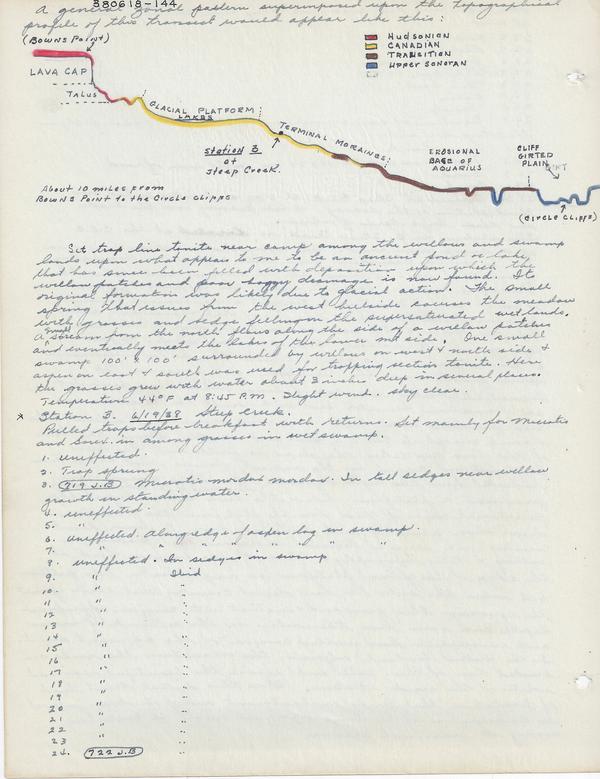 380618-144
A general zonal pattern superimposed upon the topographical
profile of this transect would appear like this:
(Bowns Point)
LAVA CAP
TALUS
GLACIAL PLATFORM
LAKES
TERMINAL MORAINES
Station 3
at
Steep Creek.
Hudsonian
CANADIAN
TRANSITION
Upper Sonoran
EROSIONAL
BASE OF
AQUARIUS
CLIFF
GIRTED
PLAIN
(CIRCLE CLIFFS)
About 10 miles from
Bowns Point to the Circle Cliffs
Set trap line tonite near camp among the willows and swamp
lands upon what appears to me to be an ancient pond or lake
that has since been filled with deposition upon which the
willow patches and poor boggy drainage is now found. Its
original formation was likely due to glacial action. The small
spring that issues from the west hillside causes the meadow
with grasses and sedges between the supersaturated wetlands.
A small stream from the north flows along the side of a willow patches
and eventually meets the lakes of the lower side. One small
swamp 100' x 100' surrounded by willows on west & north side &
aspen on east & south was used for trapping section tonite. Here
the grasses grew with water about 3 inches deep in several places.
Temperature 44°F at 8:45 P.M. Slight wind. sky clear.
* Station 3. 6/19/38 Steep Creek.
Pulled traps before breakfast with returns. Set mainly for Microtis
and Sorex in among grasses in wet swamp.
1. uneffected.
2. Trap sprung
3. (719 J.B) Microtis mordax mordax. In tall sedges near willow
growth in standing water.
4. uneffected.
5. "
6. uneffected. Along edge of aspen log in swamp.
7. " " " " "
8. uneffected. In sedges in swamp
9. " Ibid
10. " "
11. " "
12 " "
13 " "
14 " "
15 " "
16 " "
17 " "
18 " "
19 " "
20 " "
21 " "
22 " "
23 " "
24. (722 J.B) "